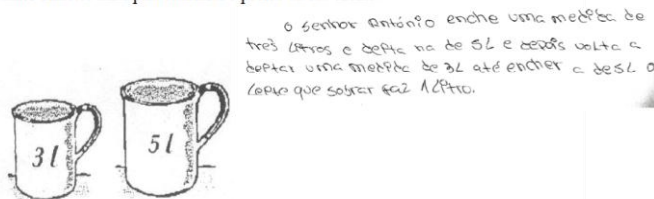 O senhor António enche uma medida de
três litros e deita na de 5L e depois volta a
deitar uma medida de 3L até encher a de 5L o
leite que sobrar faz 1 litro.
3 l
5 l